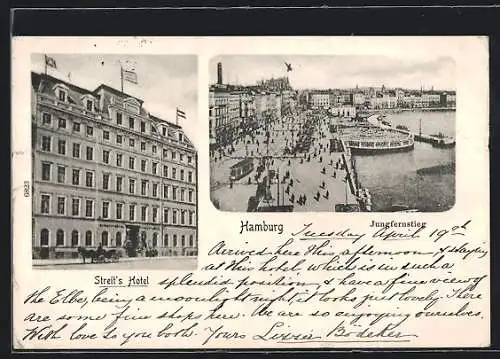 6923
Hamburg
Jungfernstieg
Streit's Hotel
Tuesday April 19th
Arrived here this afternoon, & staying
at this hotel, which is in such a
splendid position, & have a fine view of
the Elbe, being a moonlight night it looks just lovely. There
are some fine shops here. We are so enjoying ourselves.
With love to you both. Yours Bödeker